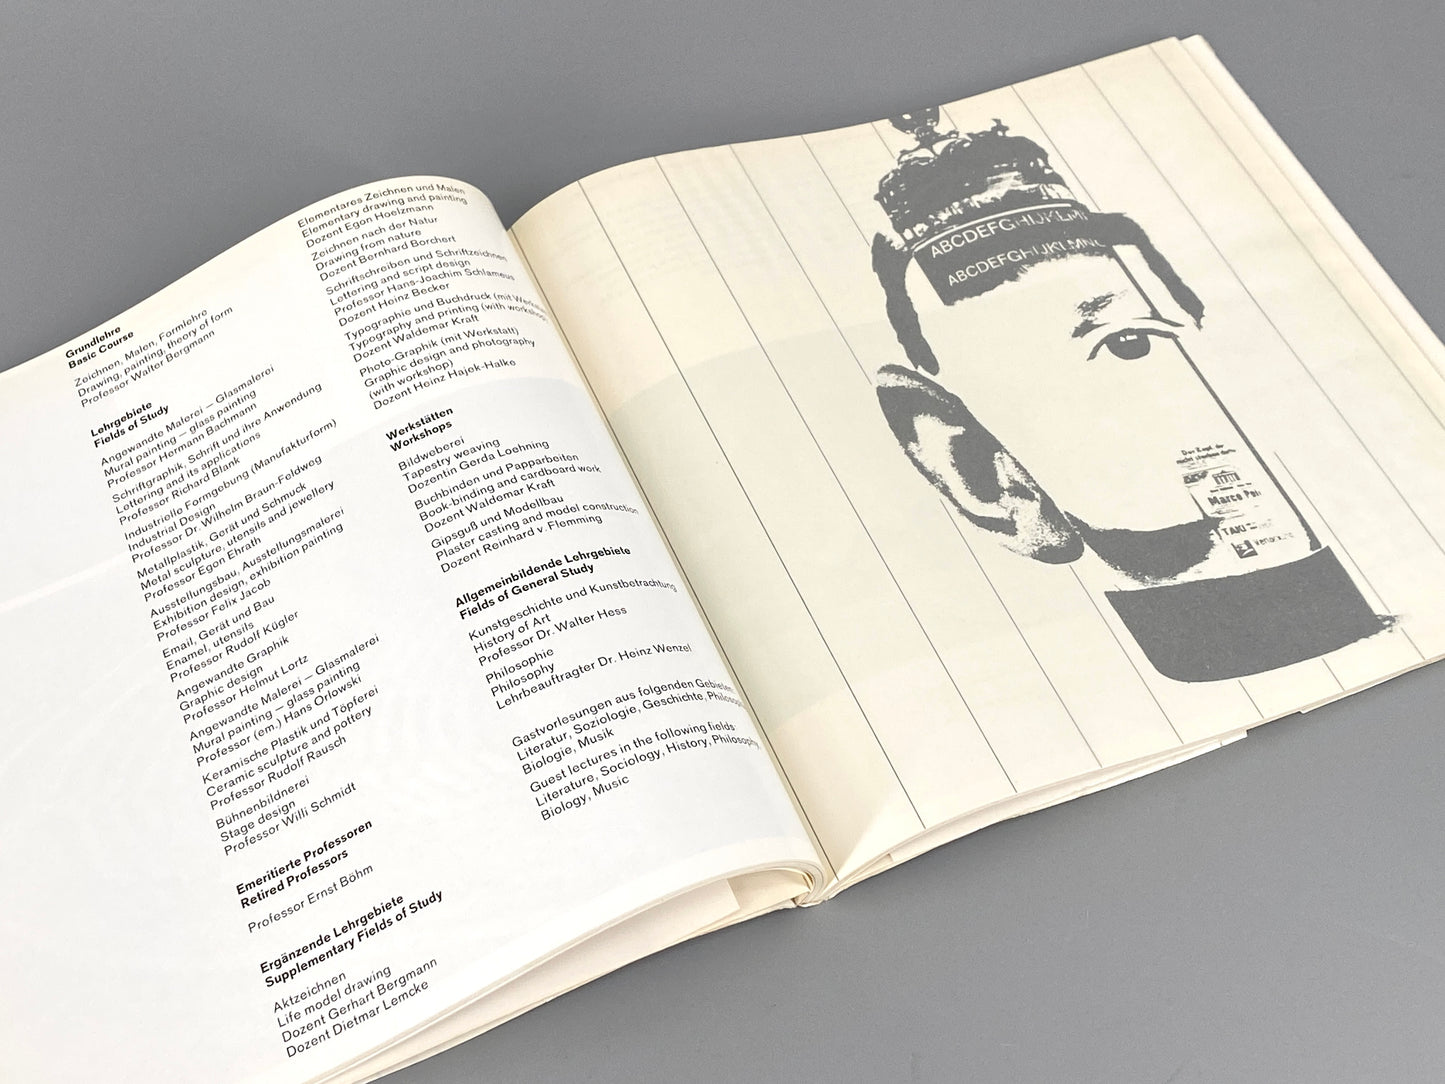 Grundlehre
Basic Course
Zeichnen, Malen, Formlehre
Drawing, painting, theory of form
Professor Walter Bergmann
Lehrgebiete
Fields of Study
Angewandte Malerei – Glasmalerei
Mural painting – glass painting
Professor Hermann Bachmann
Schriftgraphik, Schrift und ihre Anwendung
Lettering and its applications
Professor Richard Blank
Industrielle Formgebung (Manufakturform)
Industrial Design
Professor Dr. Wilhelm Braun-Feldweg
Metallplastik, Gerät und Schmuck
Metal sculpture, utensils and jewellery
Professor Egon Ehrath
Ausstellungsbau, Ausstellungsmalerei
Exhibition design, exhibition painting
Professor Felix Jacob
Email, Gerät und Bau
Enamel, utensils
Professor Rudolf Kügler
Angewandte Graphik
Graphic design
Professor Helmut Lortz
Angewandte Malerei – Glasmalerei
Mural painting – glass painting
Professor (em.) Hans Orlowski
Keramische Plastik und Töpferei
Ceramic sculpture and pottery
Professor Rudolf Rausch
Bühnenbildnerei
Stage design
Professor Willi Schmidt
Emeritierte Professoren
Retired Professors
Professor Ernst Böhm
Ergänzende Lehrgebiete
Supplementary Fields of Study
Aktzeichnen
Life model drawing
Dozent Gerhart Bergmann
Dozent Dietmar Lemcke
Elementares Zeichnen und Malen
Elementary drawing and painting
Dozent Egon Hoelzmann
Zeichnen nach der Natur
Drawing from nature
Dozent Bernhard Borchert
Schriftschreiben und Schriftzeichnen
Lettering and script design
Professor Hans-Joachim Schlameus
Dozent Heinz Becker
Typographie und Buchdruck (mit
Typography and printing (with workshop)
Dozent Waldemar Kraft
Photo-Graphik (mit Werkstatt)
Graphic design and photography
(with workshop)
Dozent Heinz Hajek-Halke
Werkstätten
Workshops
Bildweberei
Tapestry weaving
Dozentin Gerda Loehning
Buchbinden und Papparbeiten
Book-binding and cardboard work
Dozent Waldemar Kraft
Gipsguß und Modellbau
Plaster casting and model construction
Dozent Reinhard v. Flemming
Allgemeinbildende Lehrgebiete
Fields of General Study
Kunstgeschichte und Kunstbetrachtung
History of Art
Professor Dr. Walter Hess
Philosophie
Philosophy
Lehrbeauftragter Dr. Heinz Wenzel
Gastvorlesungen aus folgenden Gebieten:
Literatur, Soziologie, Geschichte,
Biologie, Musik
Guest lectures in the following fields:
Literature, Sociology, History, Philosophy,
Biology, Music
ABCDEFGHIJKLM
ABCDEFGHIJKLMN
Der Kopf der
Marco
TAKI